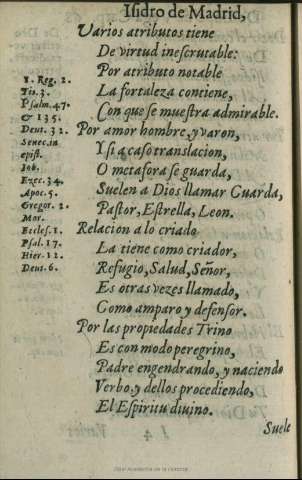 Isidro de Madrid,
Varios atributos tiene
De virtud inescrutable:
Por atributo notable
La fortaleza contiene,
Con que se muestra admirable.
Por amor hombre, y varon,
Y si a caso translacion,
O metafora se guarda,
Suelen a Dios llamar Guarda,
Pastor, Estrella, Leon.
Relacion a lo criado
La tiene como criador,
Refugio, Salud, Señor,
Es otras vezes llamado,
Como amparo y defensor.
Por las propiedades Trino
Es con modo peregrino,
Padre engendrando, y naciendo
Verbo, y dellos procediendo,
El Espiritu diuino.
Suele
1. Reg. 2.
Tis. 3.
Psalm. 47.
& 135.
Deut. 32.
Senec. in
epist.
Iob.
Ezec. 34.
Apoc. 5.
Gregor. 2.
Mor.
Eccles. 1.
Psal. 17.
Hier. 12.
Deut. 6.
Real Academia de la Historia